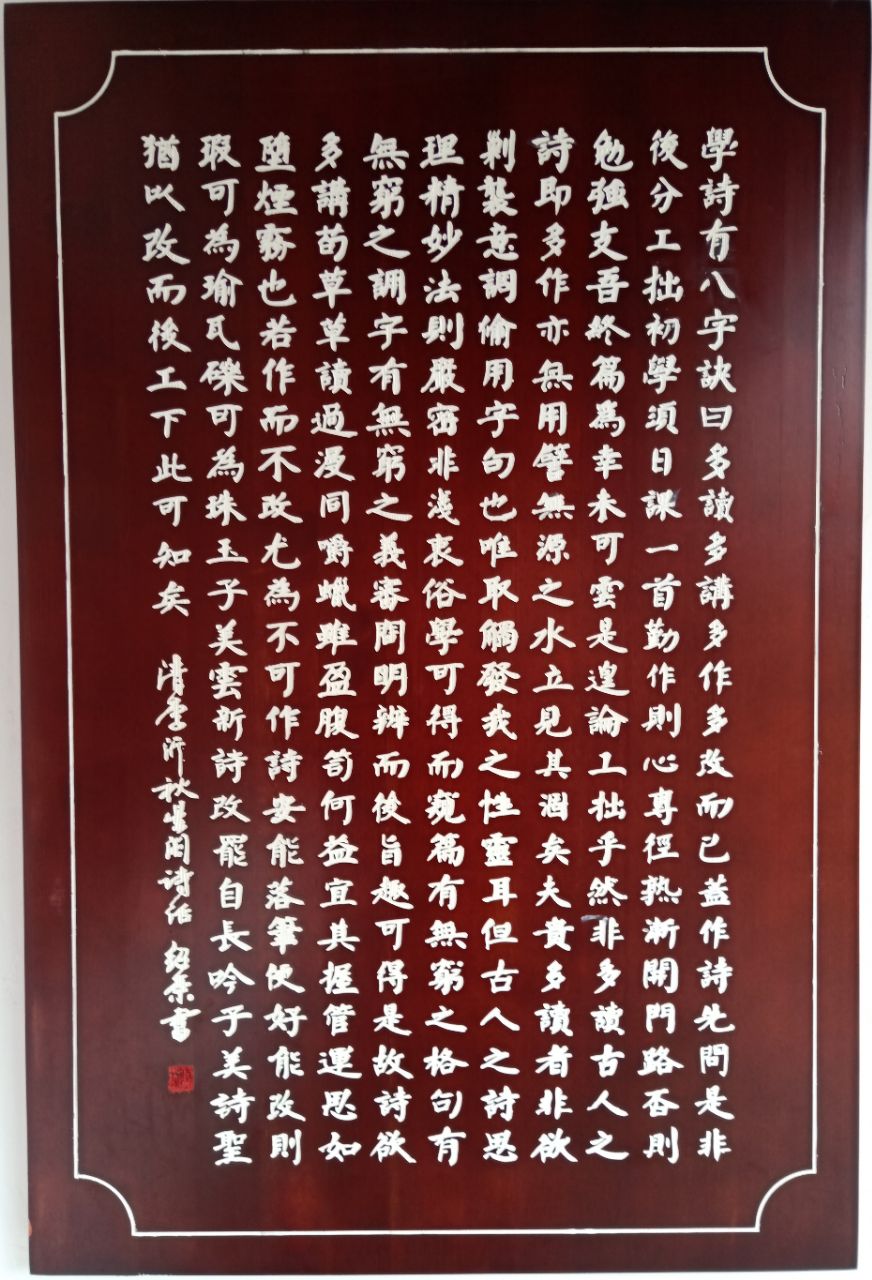 學詩有八字訣曰多讀多講多作多改而已蓋作詩先問是非
後分工拙初學須日課一首勤作則心專徑熟漸開門路否則
勉強支吾終篇為幸未可雲是遑論工拙乎然非多讀古人之
詩即多作亦無用譬無源之水立見其涸矣夫貴多讀者非欲
剿襲意調偷用字句也唯取觸發我之性靈耳但古人之詩思
理精妙法則嚴密非淺衷俗學可得而窺篇有無窮之格句有
無窮之調字有無窮之義審問明辨而後旨趣可得是故詩欲
多講苟草草讀過漫同嚼蠟雖盈腹笥何益宜其握管運思如
墮煙霧也若作而不改尤為不可作詩安能落筆便好能改則
瑕可為瑜瓦礫可為珠玉子美雲新詩改罷自長吟子美詩聖
猶以改而後工下此可知矣 清李沂秋星閣詩話 紹業書